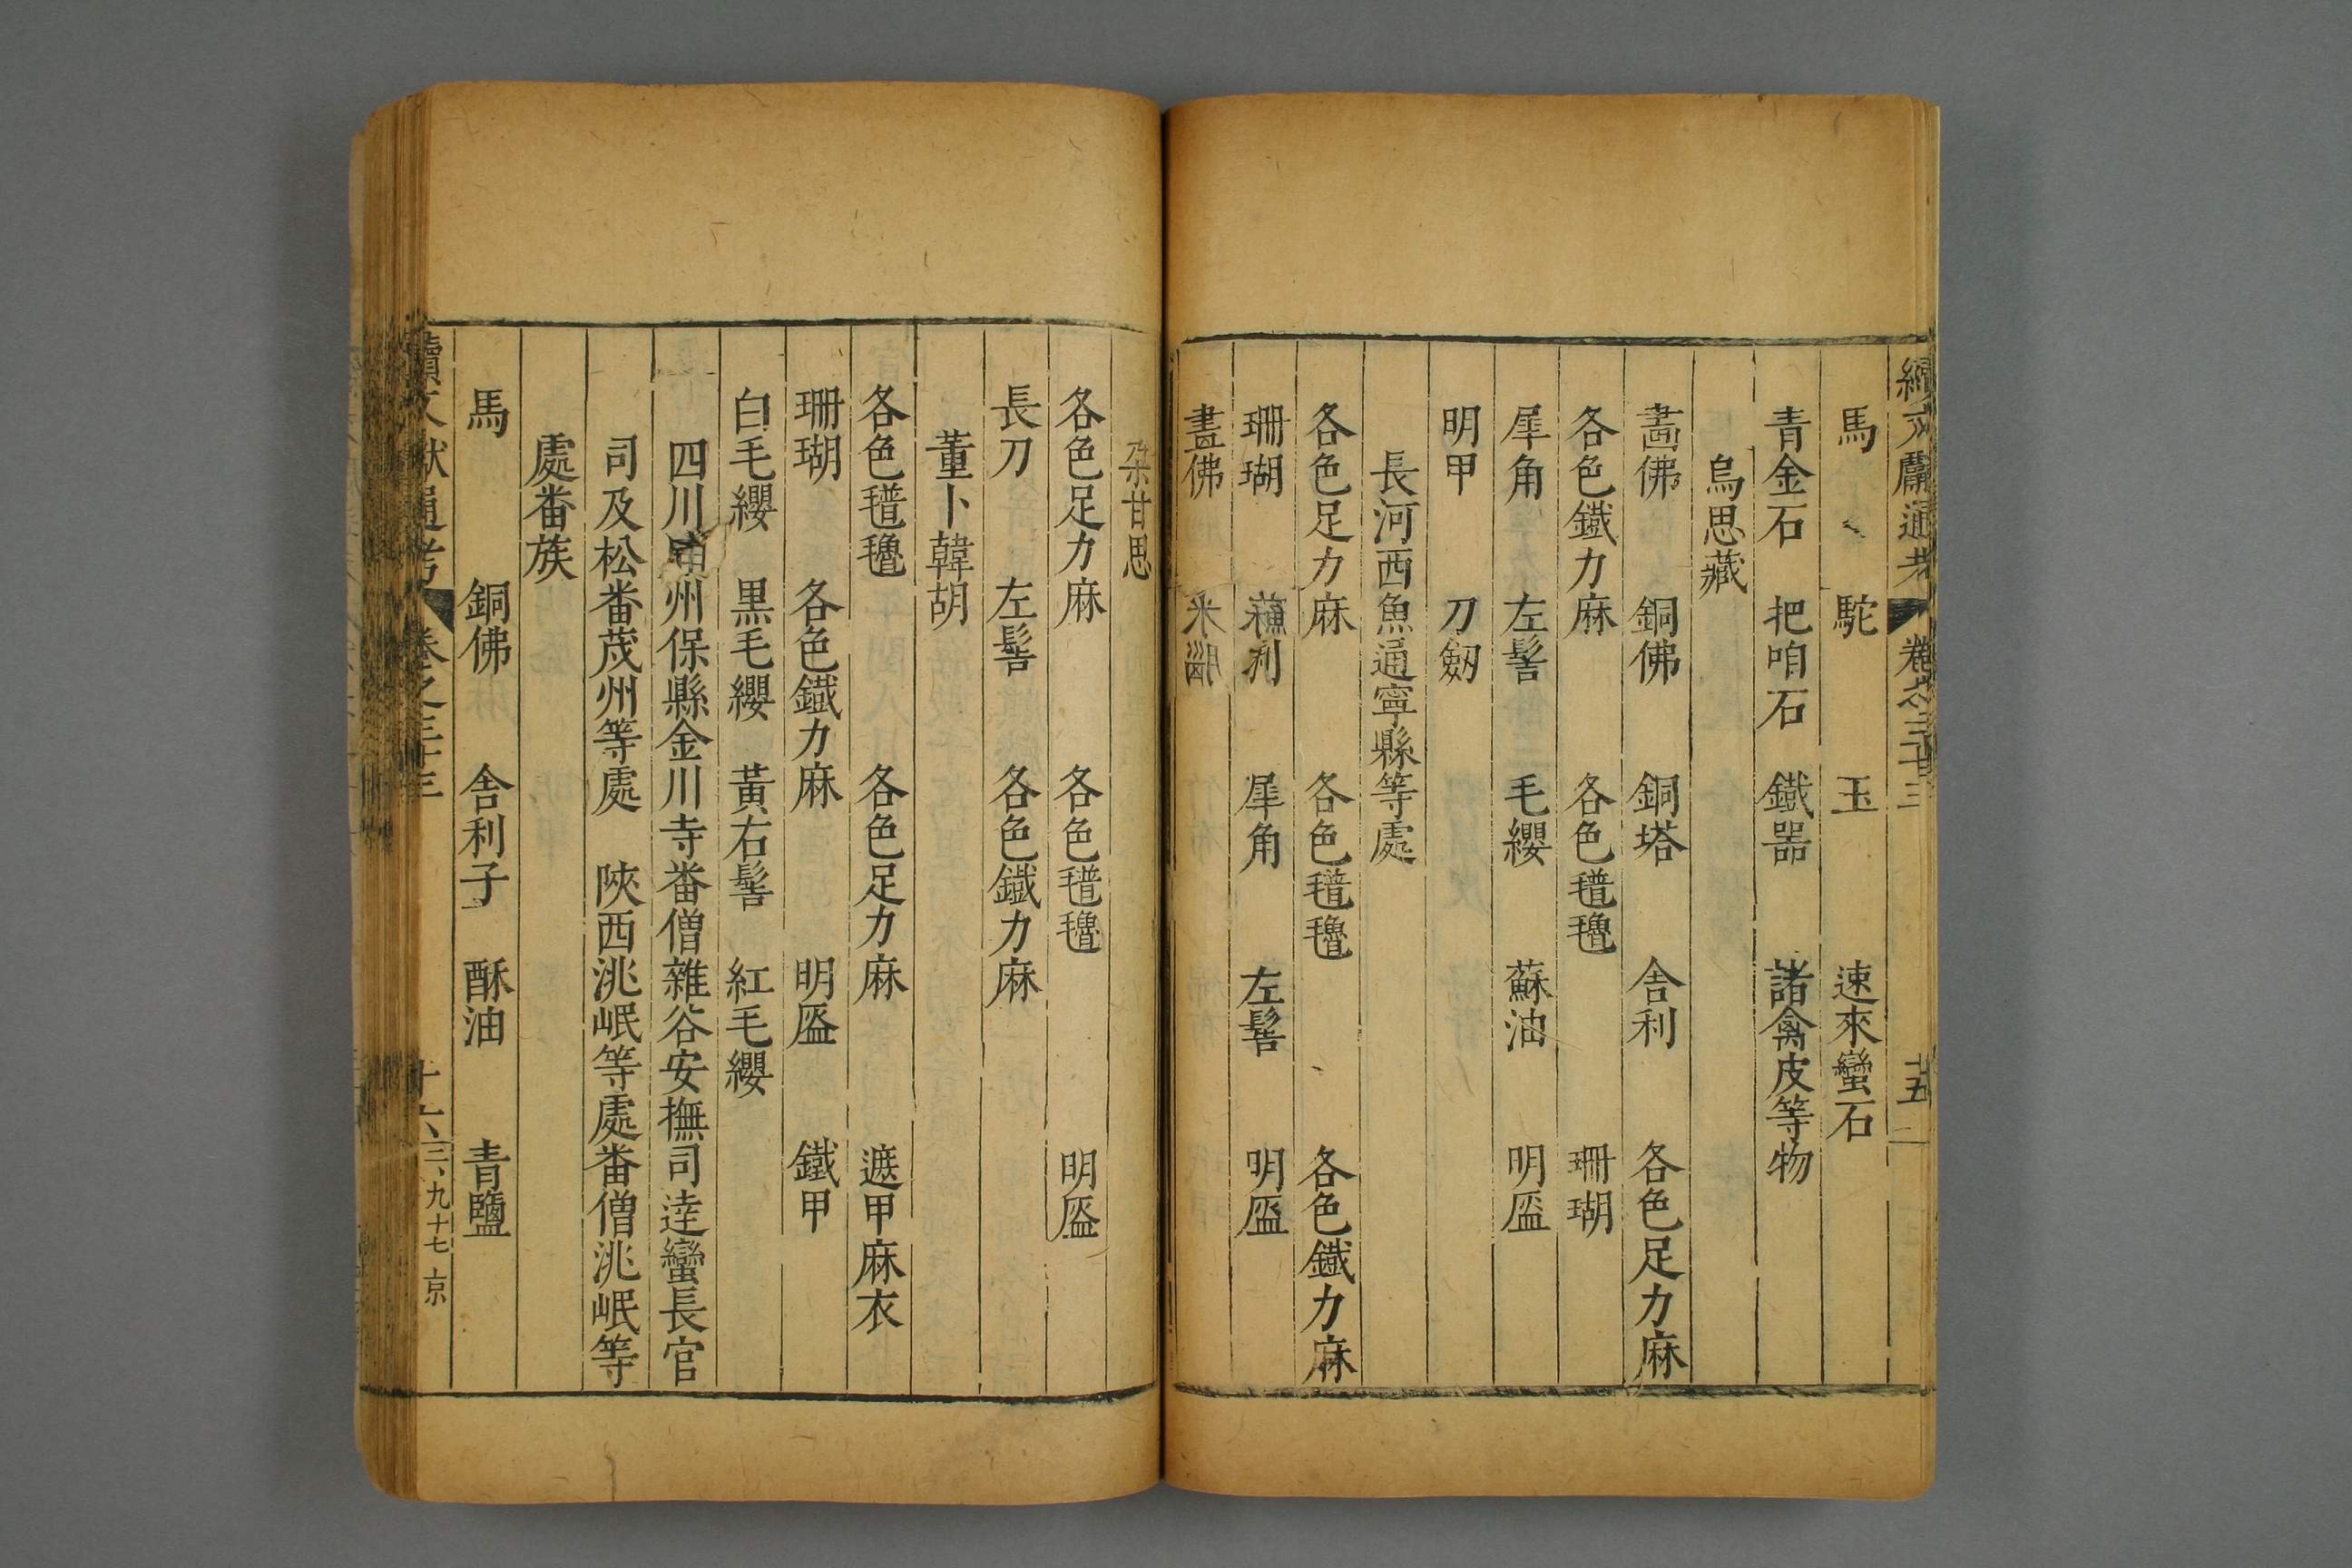 續文獻通考 卷之三十三 十五
馬 駝 玉 速來蠻石
青金石 把咱石 鐵器 諸禽皮等物
烏思藏
畵佛 銅佛 銅塔 舍利 各色足力麻
各色鐵力麻 各色氆氌 珊瑚
犀角 左髻 毛纓 蘇油 明盔
明甲 刀劒
長河西魚通寧縣等處
各色足力麻 各色氆氌 各色鐵力麻
珊瑚 蘓利 犀角 左髻 明盔
畫佛
朶甘思
各色足力麻 各色氆氌 明盔
長刀 左髻 各色鐵力麻
董卜韓胡
各色氆氌 各色足力麻 遮甲麻衣
珊瑚 各色鐵力麻 明盔 鐵甲
白毛纓 黒毛纓 黃右髻 紅毛纓
四川 州保縣金川寺畨僧雜谷安撫司逹蠻長官
司及松畨茂州等處 陝西洮岷等處畨僧洮岷等
處畨族
馬 銅佛 舍利子 酥油 青鹽
續文獻通考 卷之三十三 十六 三、九十七 京